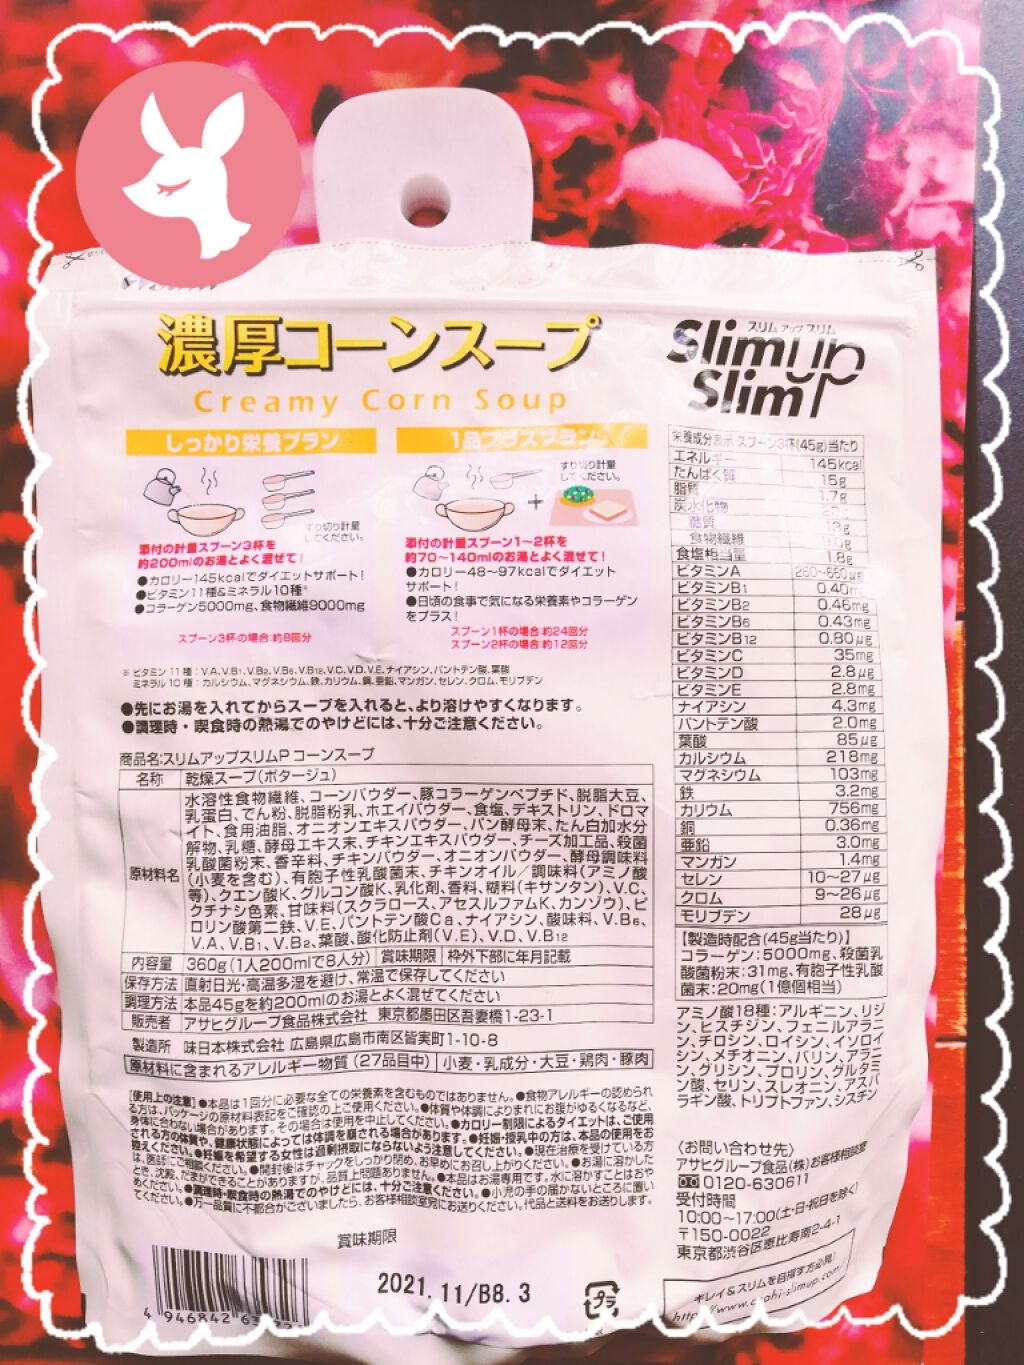 濃厚コーンスープ
Creamy Corn Soup
スリムアップスリム
Slimup
Slim
しっかり栄養プラン
すり切り計量
してください。
添付の計量スプーン3杯を
約200mlのお湯とよく混ぜて!
●カロリー145kcalでダイエットサポート!
●ビタミン11種&ミネラル10種*
●コラーゲン5000mg、食物繊維9000mg
スプーン3杯の場合:約8回分
1品プラスプラン
すり切り計量
してください。
添付の計量スプーン1〜2杯を
約70〜140mlのお湯とよく混ぜて!
●カロリー48〜97kcalでダイエット
サポート!
●日頃の食事で気になる栄養素やコラーゲン
をプラス!
スプーン1杯の場合:約24回分
スプーン2杯の場合:約12回分
※ビタミン11種:V.A、V.B1、V.B2、V.B6、V.B12、V.C、V.D、V.E、ナイアシン、パントテン酸、葉酸
ミネラル10種:カルシウム、マグネシウム、鉄、カリウム、銅、亜鉛、マンガン、セレン、クロム、モリブデン
●先にお湯を入れてからスープを入れると、より溶けやすくなります。
●調理時・喫食時の熱湯でのやけどには、十分ご注意ください。
商品名:スリムアップスリムP コーンスープ
名称 乾燥スープ(ポタージュ)
原材料名
水溶性食物繊維、コーンパウダー、豚コラーゲンペプチド、脱脂大豆、
乳蛋白、でん粉、脱脂粉乳、ホエイパウダー、食塩、デキストリン、ドロマ
イト、食用油脂、オニオンエキスパウダー、パン酵母末、たん白加水分
解物、乳糖、酵母エキス末、チキンエキスパウダー、チーズ加工品、殺菌
乳酸菌粉末、香辛料、チキンパウダー、オニオンパウダー、酵母調味料
(小麦を含む)、有胞子性乳酸菌末、チキンオイル/調味料(アミノ酸
等)、クエン酸K、グルコン酸K、乳化剤、香料、糊料(キサンタン)、V.C、
クチナシ色素、甘味料(スクラロース、アセスルファムK、カンゾウ)、ピ
ロリン酸第二鉄、V.E、パントテン酸Ca、ナイアシン、酸味料、V.B6、
V.A、V.B1、V.B2、葉酸、酸化防止剤(V.E)、V.D、V.B12
内容量 360g(1人200mlで8人分) 賞味期限 枠外下部に年月記載
保存方法 直射日光・高温多湿を避け、常温で保存してください
調理方法 本品45gを約200mlのお湯とよく混ぜてください
販売者 アサヒグループ食品株式会社 東京都墨田区吾妻橋1-23-1
製造所 味日本株式会社 広島県広島市南区皆実町1-10-8
原材料に含まれるアレルギー物質(27品目中) 小麦・乳成分・大豆・鶏肉・豚肉
[使用上の注意]●本品は1回分に必要な全ての栄養素を含むものではありません。●食物アレルギーの認められ
る方は、パッケージの原材料表記をご確認の上ご使用ください。●体質や体調によりまれにお腹がゆるくなるなど、
身体に合わない場合があります。その場合は使用を中止してください。●カロリー制限によるダイエットは、ご使用
される方の体質や、健康状態によっては体調を崩される場合があります。●妊娠・授乳中の方は、本品の使用をお
控えください。●妊娠を希望する女性は過剰摂取にならないよう注意してください。●現在治療を受けている方
は、医師にご相談ください。●開封後はチャックをしっかり閉め、お早めにお召し上がりください。●お湯に溶かした
とき、沈殿、だまができることがありますが、品質上問題ありません。●本品はお湯専用です。水に溶かすことはおや
めください。●調理時・喫食時の熱湯でのやけどには、十分ご注意ください。●小児の手の届かないところに置い
てください。●万一品質に不都合がございましたら、お客様相談室宛にお送りください。代品と送料をお送りします。
賞味期限
2021.11/B8.3
プラ
栄養成分表示 スプーン3杯(45g)当たり
エネルギー 145kcal
たんぱく質 15g
脂質 1.7g
炭水化物
糖質 13g
食物繊維
食塩相当量 1.8g
ビタミンA 260〜660μg
ビタミンB1 0.40mg
ビタミンB2 0.46mg
ビタミンB6 0.43mg
ビタミンB12 0.80μg
ビタミンC 35mg
ビタミンD 2.8μg
ビタミンE 2.8mg
ナイアシン 4.3mg
パントテン酸 2.0mg
葉酸 85μg
カルシウム 218mg
マグネシウム 103mg
鉄 3.2mg
カリウム 756mg
銅 0.36mg
亜鉛 3.0mg
マンガン 1.4mg
セレン 10〜27μg
クロム 9〜26μg
モリブデン 28μg
【製造時配合(45g当たり)】
コラーゲン:5000mg、殺菌乳
酸菌粉末:31mg、有胞子性乳酸
菌末:20mg(1億個相当)
アミノ酸18種:アルギニン、リジ
ン、ヒスチジン、フェニルアラニ
ン、チロシン、ロイシン、イソロイ
シン、メチオニン、バリン、アラニ
ン、グリシン、プロリン、グルタミ
ン酸、セリン、スレオニン、アスパ
ラギン酸、トリプトファン、シスチン
〈お問い合わせ先〉
アサヒグループ食品(株)お客様相談室
0120-630611
受付時間
10:00〜17:00(土・日・祝日を除く)
〒150-0022
東京都渋谷区恵比寿南2-4-1
キレイ&スリムを目指す方必見!
http://www.asahi-slimup.com/